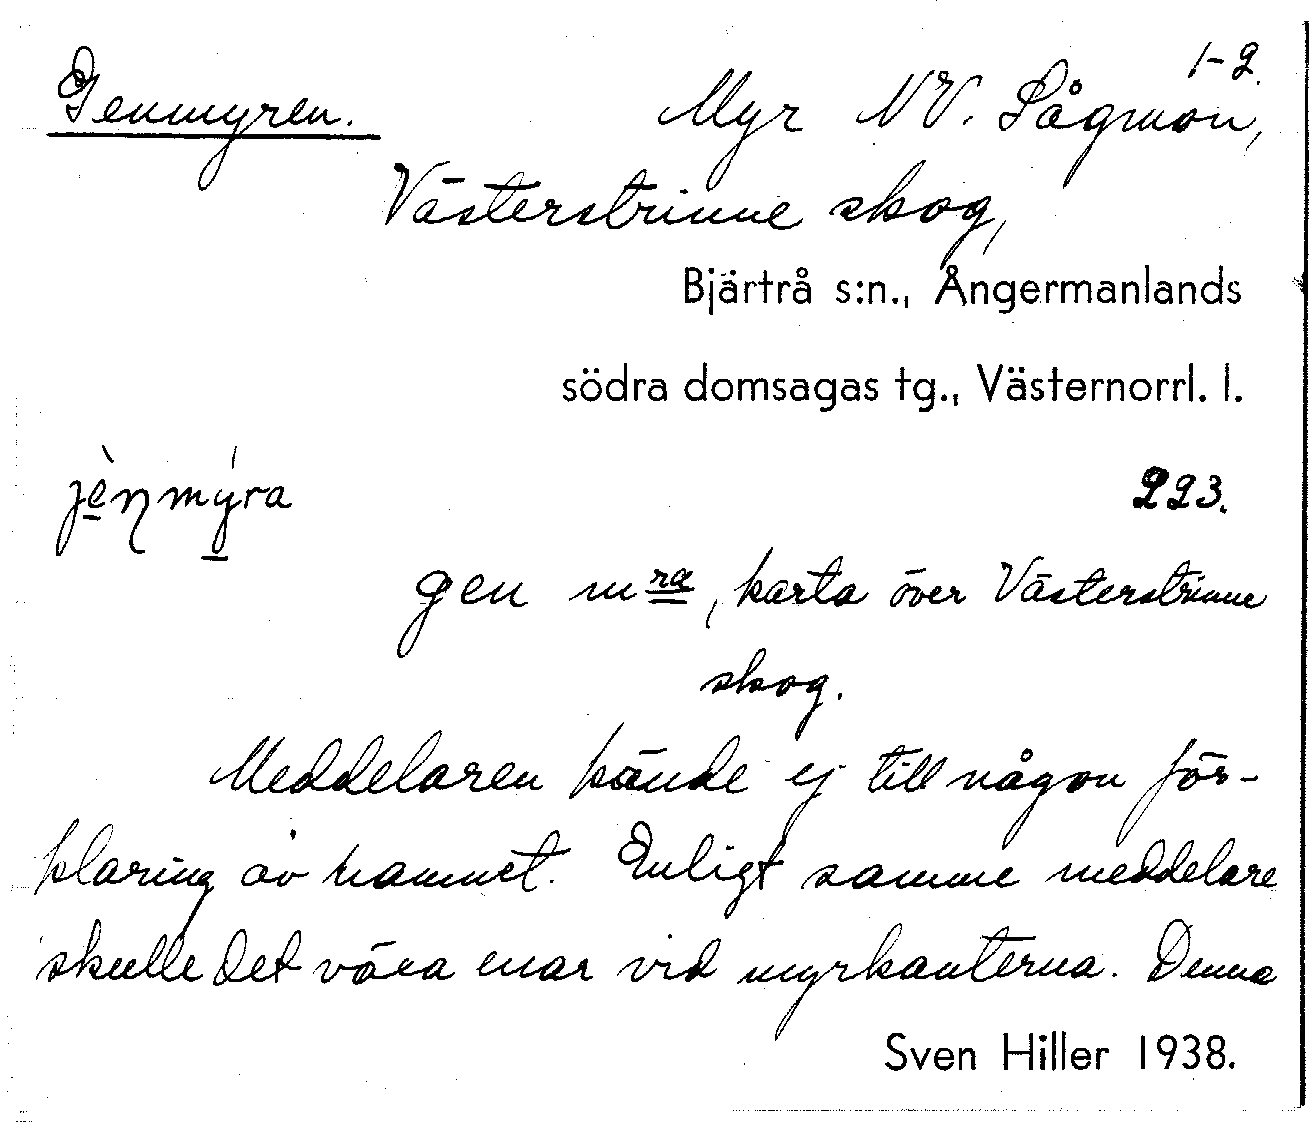 1-2.
Genmyren. Myr NV. Sågmon,
Västerstrinne skog,
Bjärtrå s:n., Ångermanlands
södra domsagas tg., Västernorrl. l.
jè̱nmý̱ra 223.
gen mra, karta över Västerstrinne
skog.
Meddelaren kände ej till någon för-
klaring av namnet. Enligt samme meddelare
skulle det växa enar vid myrkanterna. Denna
Sven Hiller 1938.